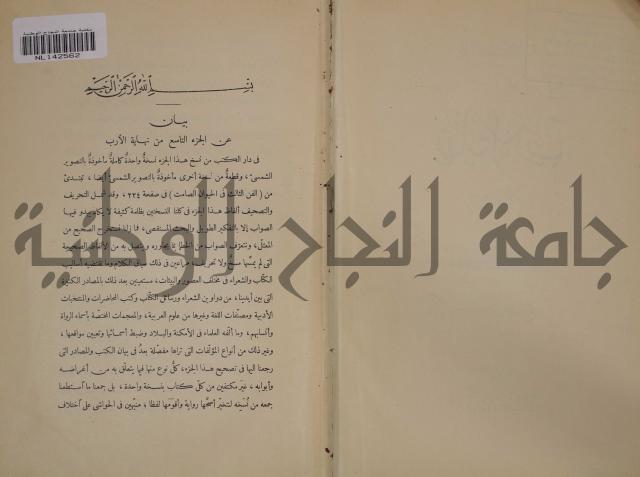 مكتبة جامعة النجاح الوطنية
NL142562
بسم الله الرحمن الرحيم
بيان
عن الجزء التاسع من نهاية الأرب
فى دار الكتب من نسخ هذا الجزء نسخة واحدة كاملة مأخوذة بالتصوير
الشمسى، وقطعة من نسخة أخرى مأخوذة بالتصوير الشمسى أيضا، تبتدئ
من (الفن الثالث فى الحيوان الصامت) فى صفحة ٢٢٤، وقد شمل التحريف
والتصحيف ألفاظ هذا الجزء فى كلتا النسختين بظلمة كثيفة لا يكاد يبدو فيها
الصواب إلا بالتفكير الطويل والبحث المستقصى، فما زلنا نستخرج الصحيح من
المعتل، ونتعرف الصواب من الخطإ بما يجاوره ويتصل به من الألفاظ الصحيحة
التى لم يمسها مسخ ولا تحريف، مراعين فى ذلك سياق الكلام وما تقتضيه أساليب
الكتاب والشعراء فى مختلف العصور والبيئات، مستعينين بعد ذلك بالمصادر الكثيرة
التى بين أيدينا، من دواوين الشعراء ورسائل الكتاب وكتب المحاضرات والمنتخبات
الأدبية ومصنفات اللغة وغيرها من علوم العربية، والمعجمات المختصة بأسماء الرواة
وأنسابهم، وما ألفه العلماء فى الأمكنة والبلاد وضبط أسمائها وتعيين مواقعها،
وغير ذلك من أنواع المؤلفات التى تراها مفصلة بعد فى بيان الكتب والمصادر التى
رجعنا اليها فى تصحيح هذا الجزء، كل نوع منها فيما يتعلق به من أغراضه
وأبوابه، غير مكتفين من كل كتاب بنسخة واحدة، بل جمعنا ما استطعنا
جمعه من نسخه لنتخير أصحها رواية وأقومها لفظا؛ منبهين فى الحواشى على اختلاف
جامعة النجاح الوطنية